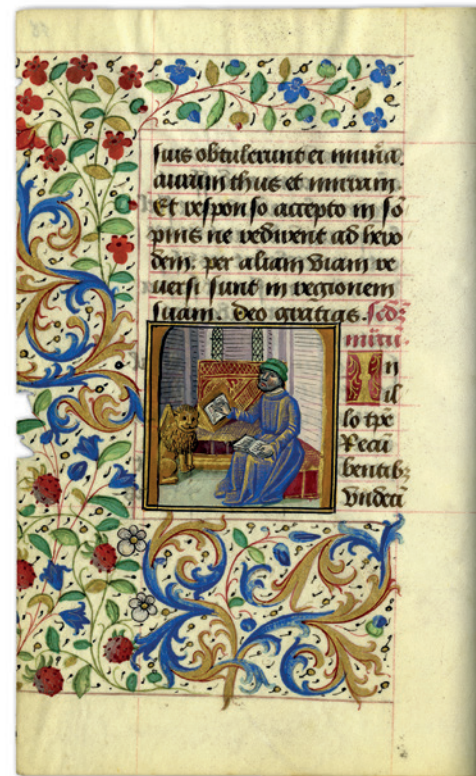 suis obtulerunt ei mun̄a.
aurum thus et mirram.
Et responso accepto in sō
pnis ne redirent ad hero
dem. per aliam viam re
uersi sunt in regionem
suam. deo gratias. Scdꝫ
marcū.
In
il
lo tp̄e
Recū
bentibꝫ
vndecī